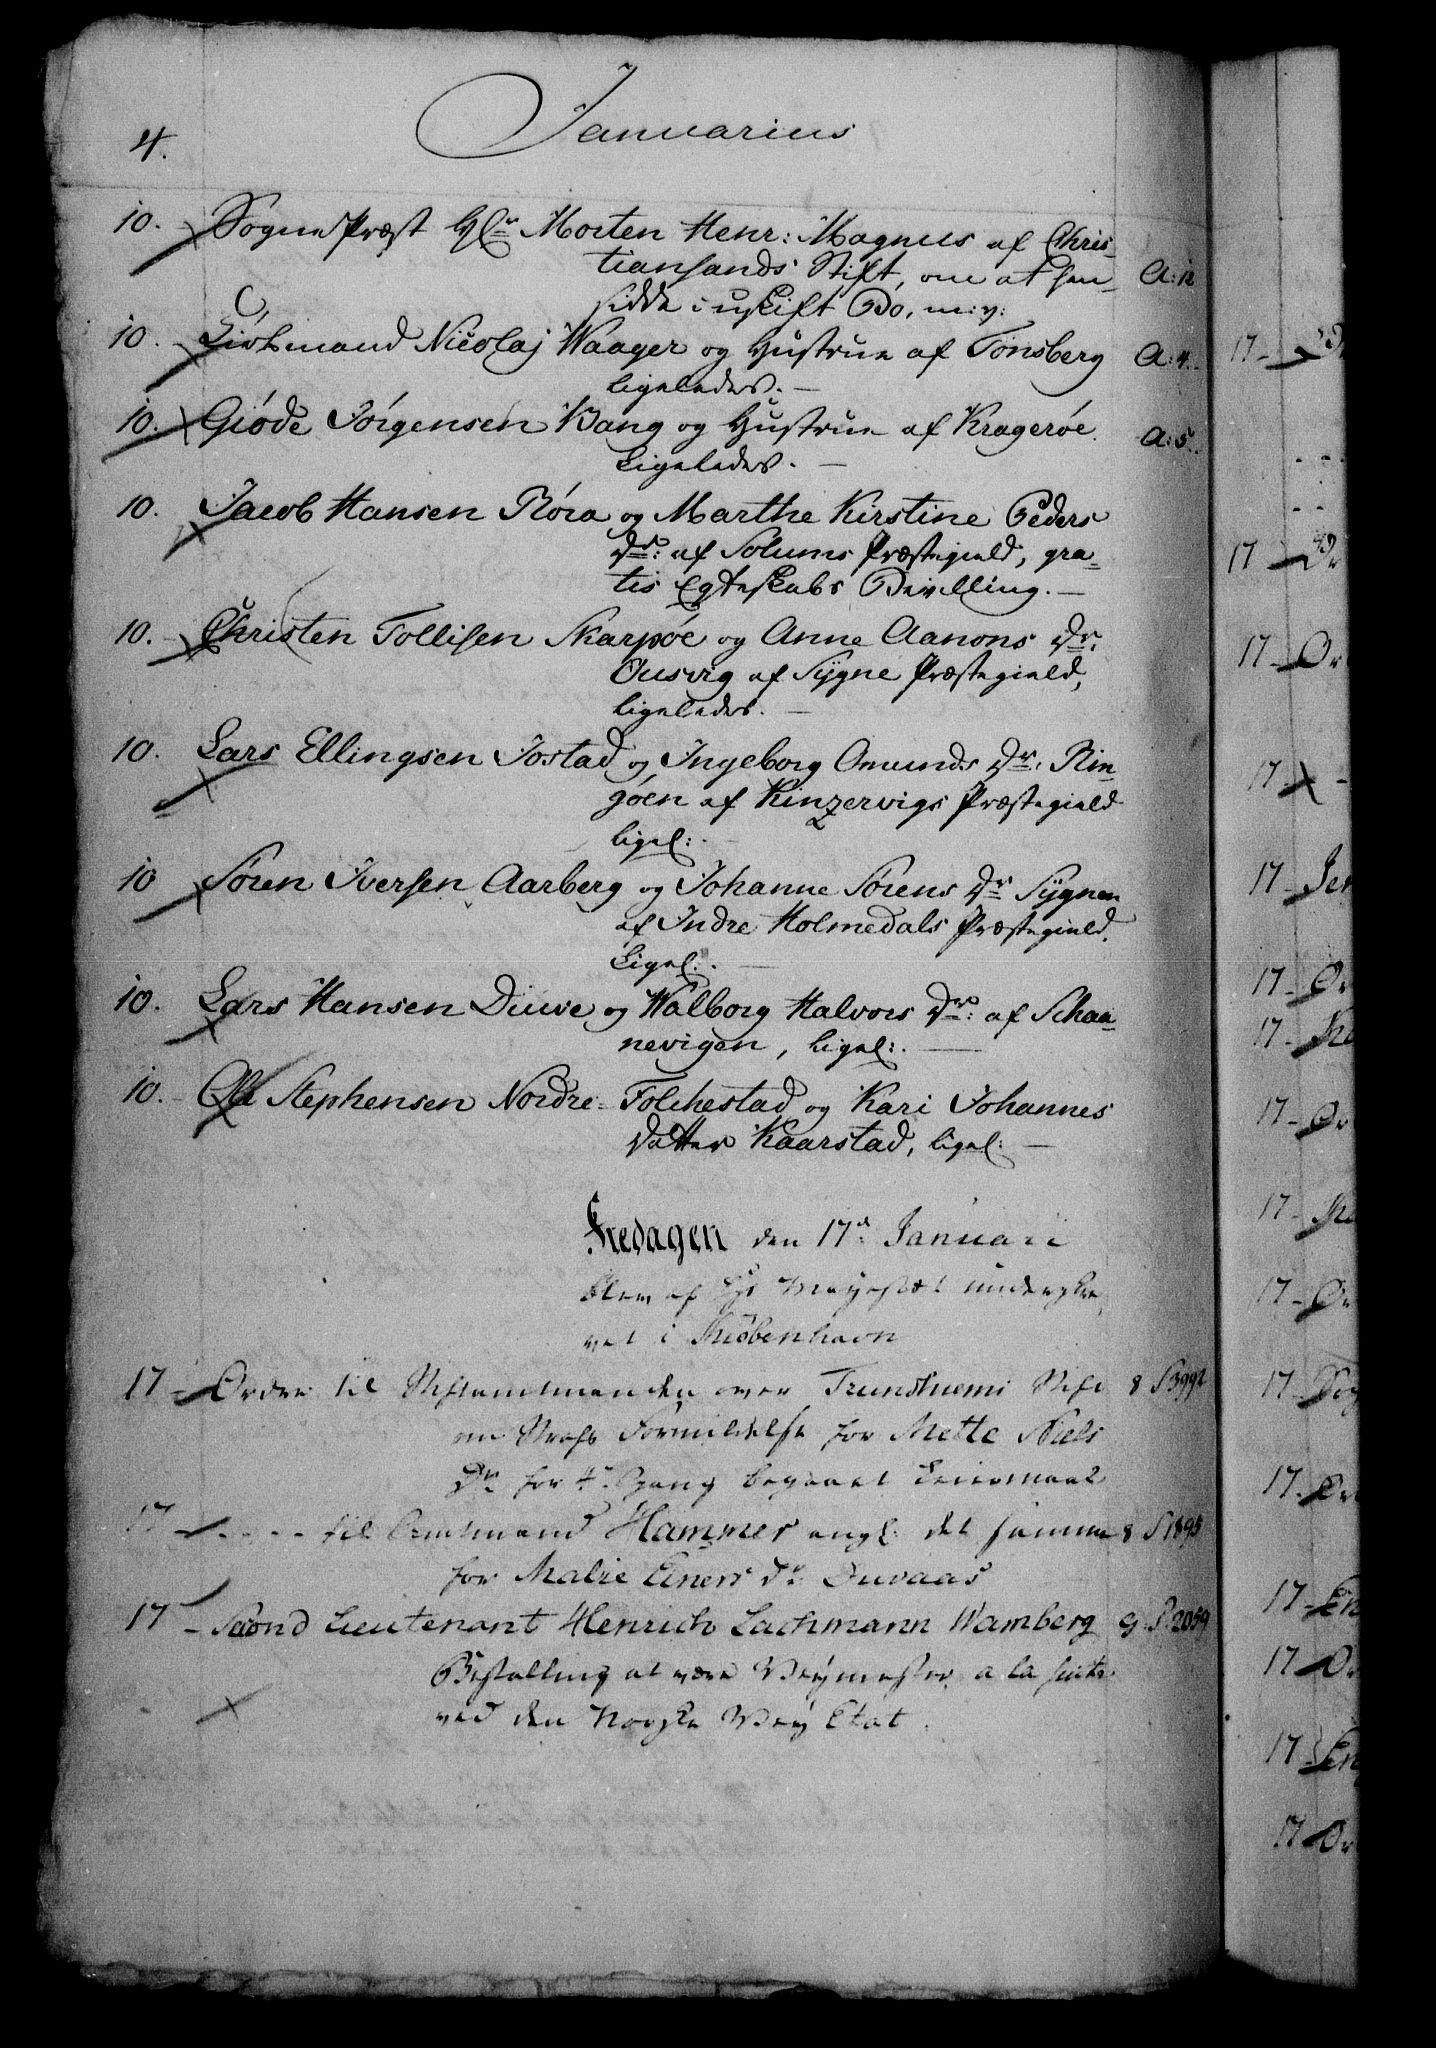 4.
Januarius
10. Sogne Præst Hr. Morten Henr: Magnus af Chris-
tiansands Stift, om at hen- A: 12
sidde i uskift Bo, m: v:
10. Kiøbmand Nicolaj Waager og Hustrue af Tønsberg A: 4.
ligeledes. —
10. Giöde Jörgensen Bang og Hustrue af Krageröe. A: 5.
Ligeledes. —
10. Jacob Hansen Röra og Marthe Kirstine Peders
Dr: af Solums Præstegield, gra-
tis Egteskabs Bevilling. —
10. Christen Tollisen Skarpöe og Anne Aanons Dr:
Ousvig af Sygne Præstegield,
ligeledes. —
10. Lars Ellingsen Jostad og Ingeborg Omunds Dr: Rin-
göen af Kinzervigs Præstegield
ligel:
10 Sören Iversen Aarberg og Johanne Sörens Dr Sygnen
af Indre Holmedals Præstegield.
Ligel: —
10. Lars Hansen Diuve og Walborg Halvors Dr: af Schaa-
nevigen, ligel: —
10. Ole Stephensen Nordre- Folchestad og Kari Johannes
Datter Kaarstad, ligel: —
Fredagen den 17d Januari
blev af Hs Mayestæt underskre-
vet i Kiöbenhavn
17 - Ordre til Stiftamtmanden over Trundhiems Stift 8 S 3992
om Strafs Formildelse for Mette Niels
Dr for 4de Gang begaaet Leiermaal
17 - - - - til Amtmand Hammer angl. det samme 8 S 1895
for Malie Einers Dr.
17 - Second Lieutenant Henrich Lachmann Wamberg G. S. 2059
Bestalling at være Veymester a la suite
ved den Norske Vey Etat.
17 -
17 -
17 - Or
17 -
17 - Jen
17 - Or
17 -
17 - Or
17 -
17 - Or
17 -
17 - Or
17 -
17 - Or
17
17 - Or